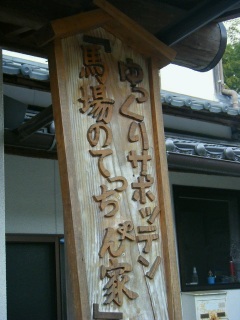 ゆっくりサボッテン
「馬場のてっちゃん家」